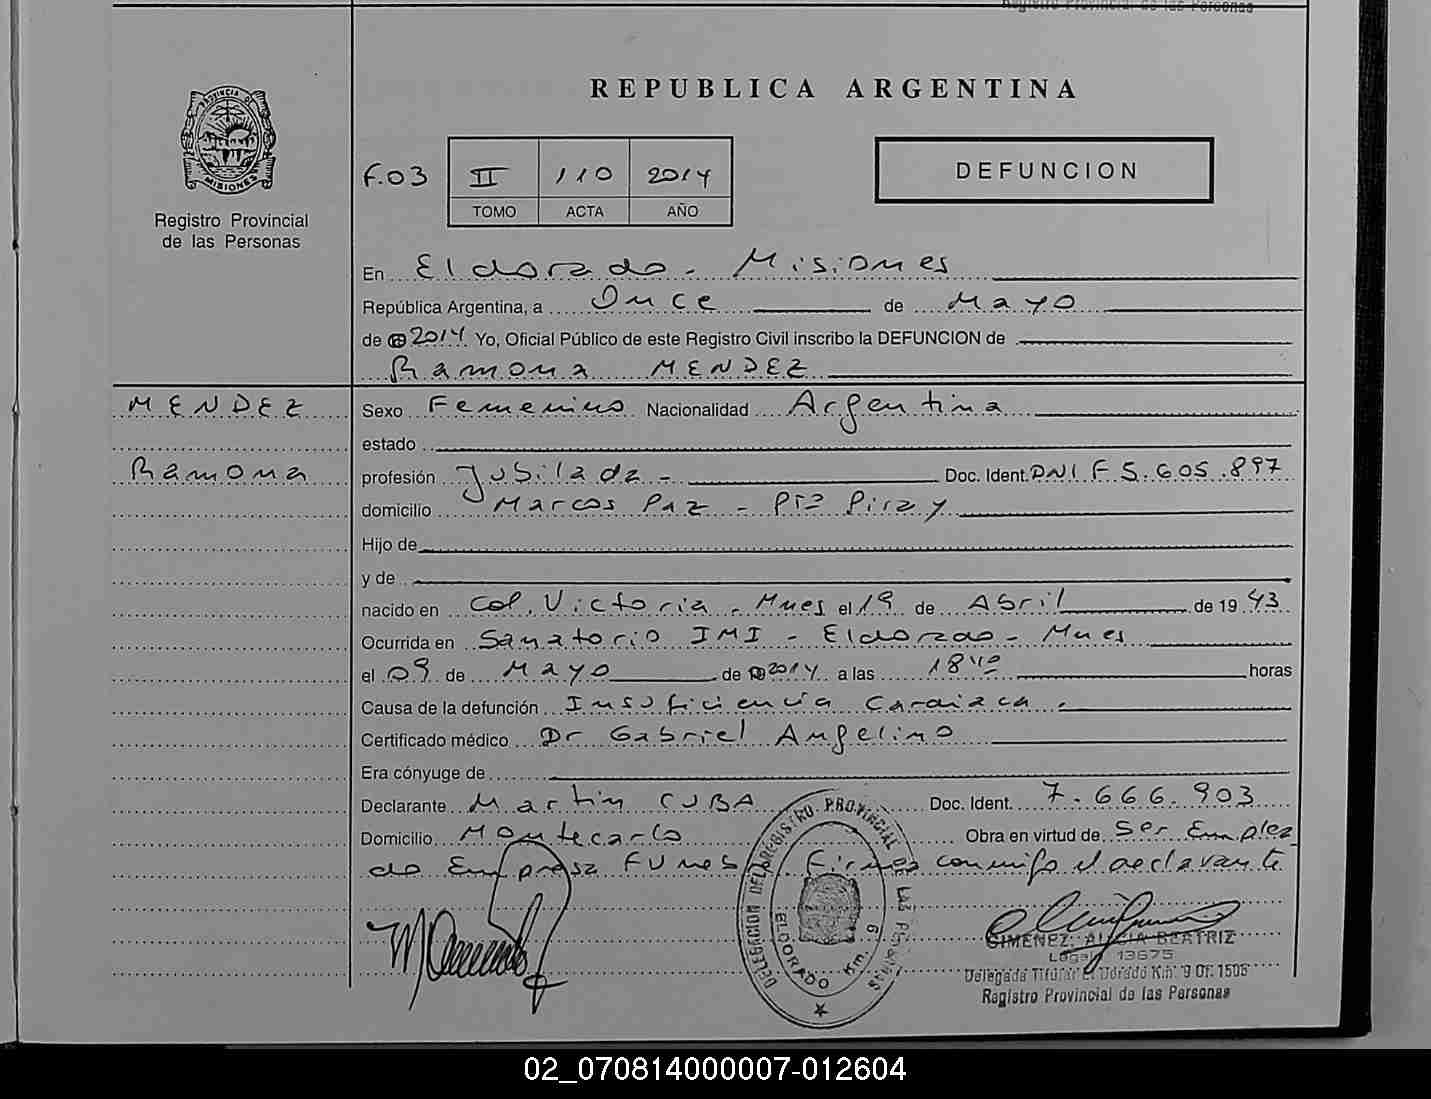 Registro Provincial de las Personas
REPUBLICA ARGENTINA
PROVINCIA DE
MISIONES
Registro Provincial
de las Personas
F.03 II 110 2014
TOMO ACTA AÑO
DEFUNCION
En Eldorado - Misiones
República Argentina, a Once de Mayo
de 2014 Yo, Oficial Público de este Registro Civil inscribo la DEFUNCION de
Ramona MENDEZ
MENDEZ
Ramona
Sexo Femenino Nacionalidad Argentina
estado
profesión Jubilada - Doc. Ident. DNI F 5.605.897
domicilio Marcos Paz - Pto Piray
Hijo de
y de
nacido en Col. Victoria - Mnes el 19 de Abril de 19 43
Ocurrida en Sanatorio IMI - Eldorado - Mnes
el 09 de Mayo de 2014 a las 18 40 horas
Causa de la defunción Insuficiencia Cardiaca.
Certificado médico Dr Gabriel Angelino
Era cónyuge de
Declarante Martin CUBA Doc. Ident. 7.666.903
Domicilio Montecarlo Obra en virtud de Ser Emplea
do Empresa FUNEB Firma conmigo el declarante
DELEGACION DEL REGISTRO PROVINCIAL DE LAS PERSONAS
ELDORADO Km. 9
GIMENEZ, ALICIA BEATRIZ
Legajo 13675
Delegada Titular El Dorado Km. 9 Of. 1506
Registro Provincial de las Personas
02_070814000007-012604